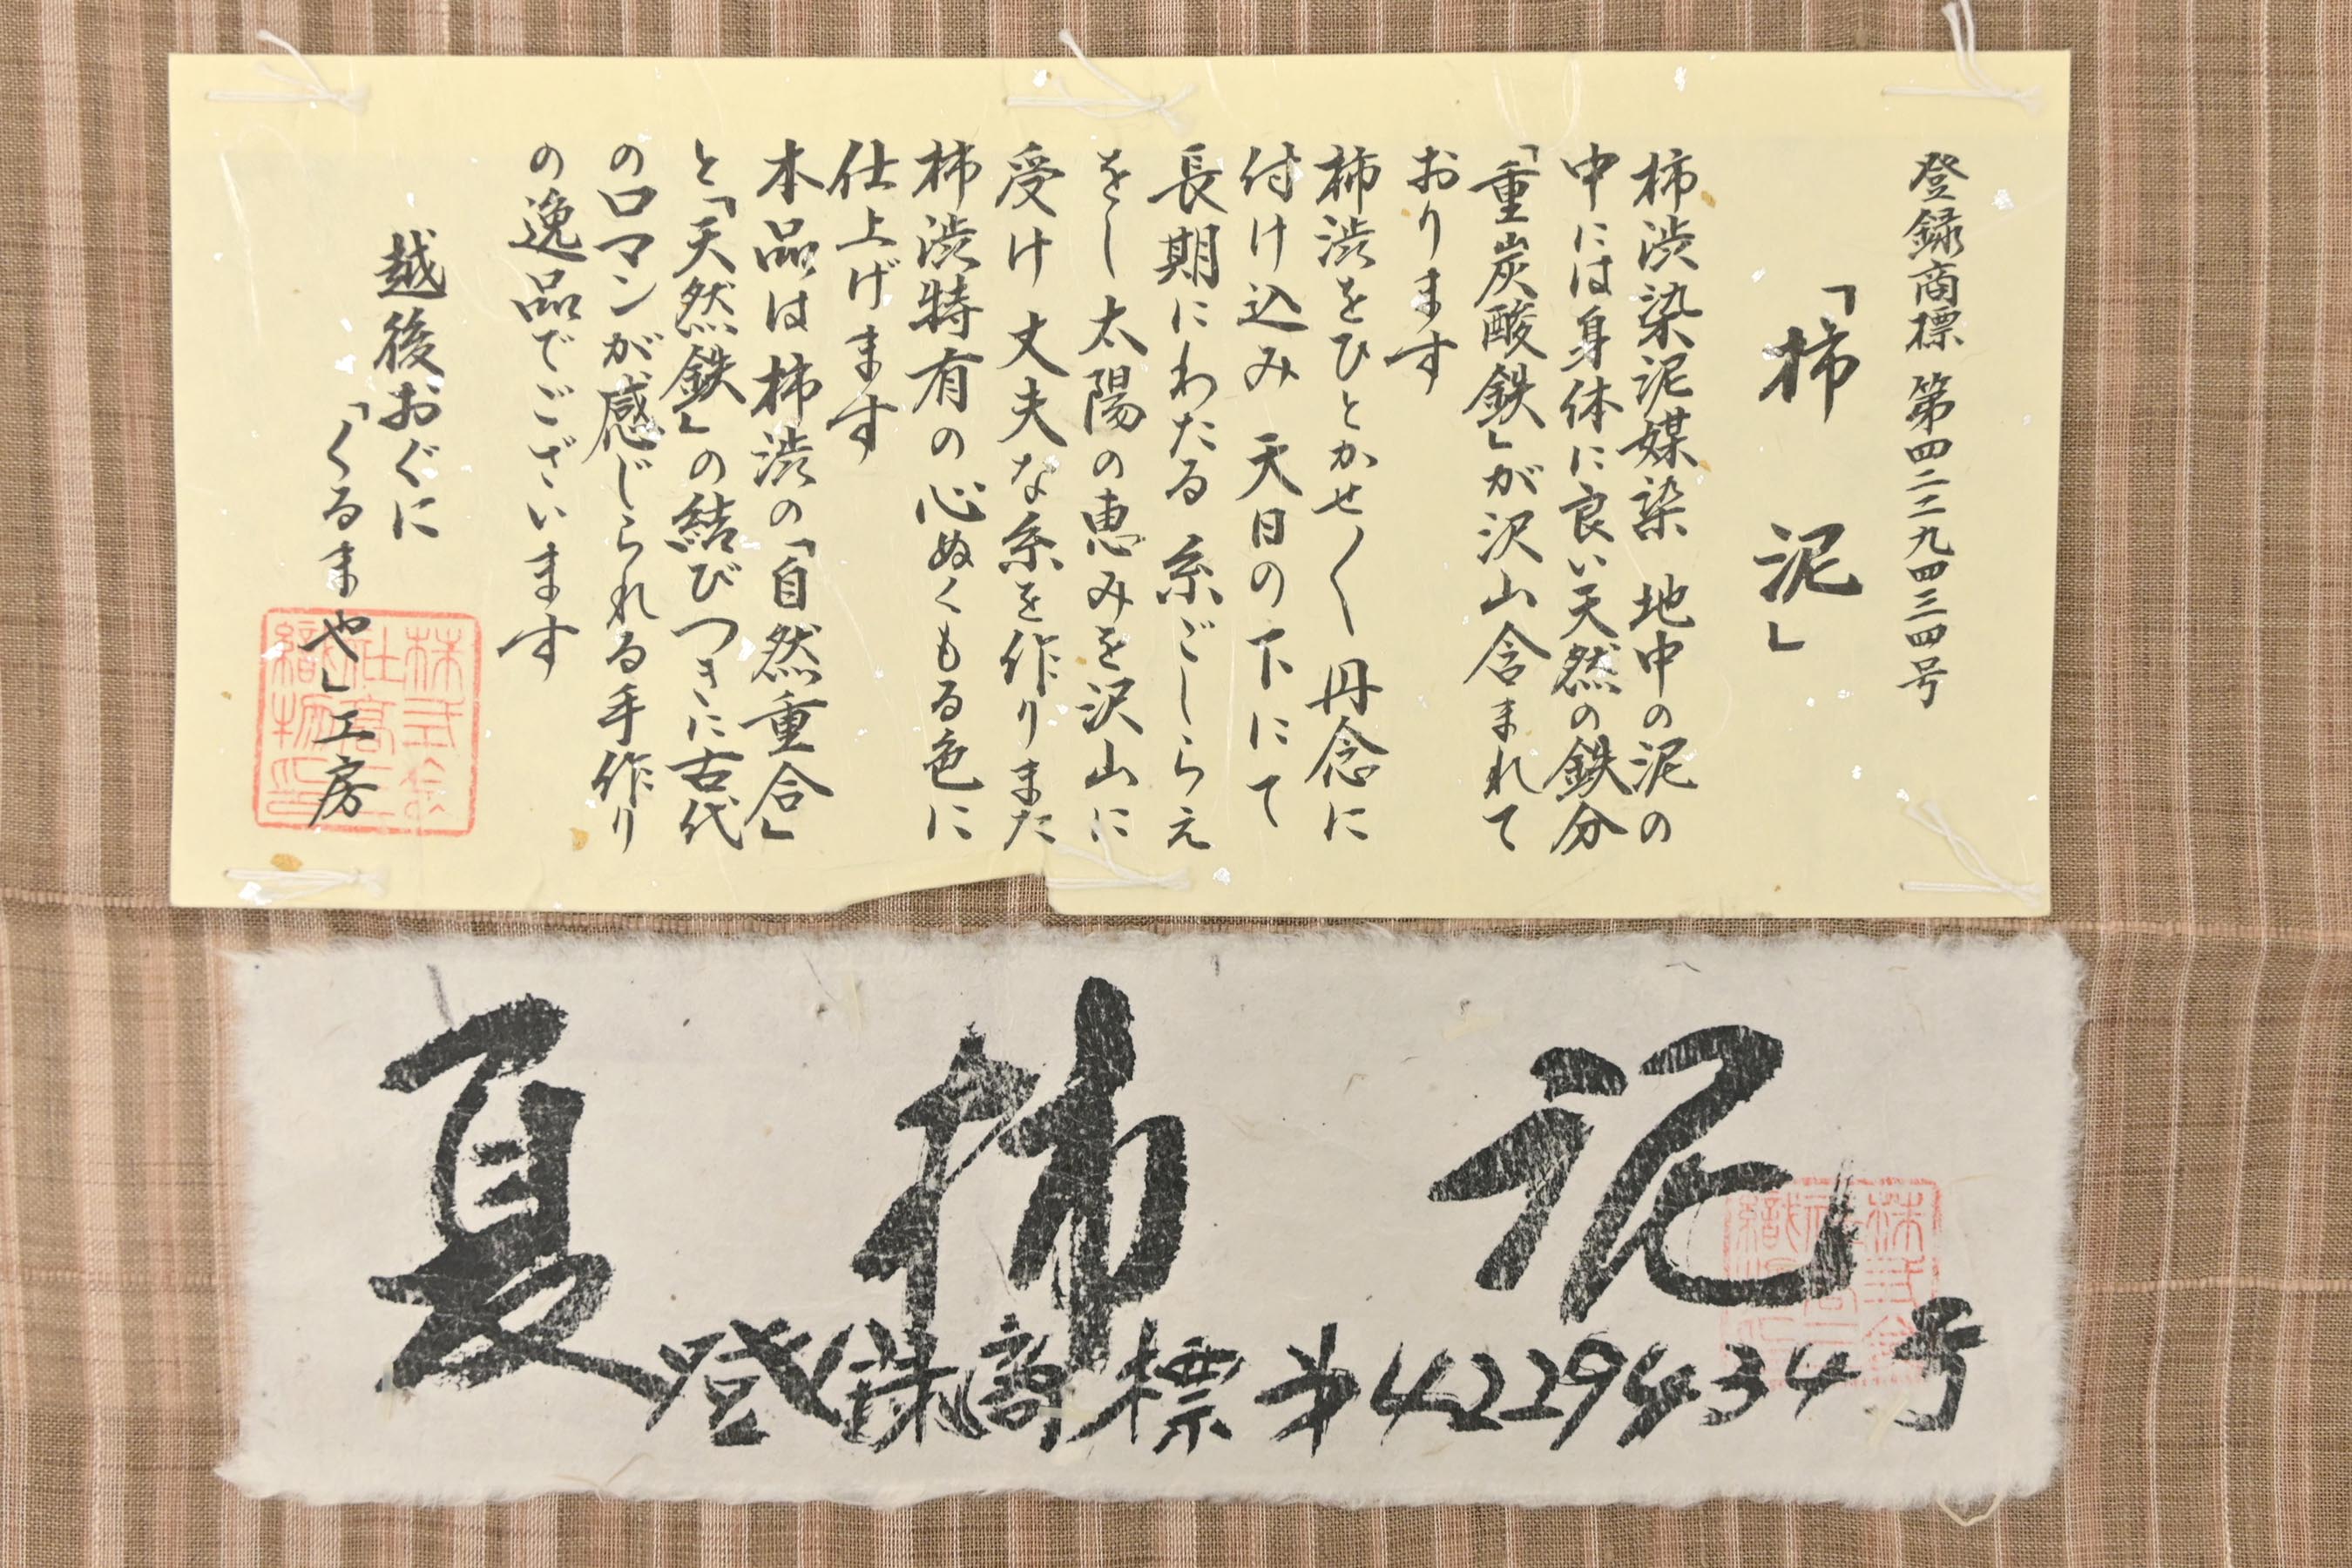 登録商標 第四二二九四三四号
「柿 泥」
柿渋染泥媒染 地中の泥の
中には身体に良い天然の鉄分
「重炭酸鉄」が沢山含まれて
おります
柿渋をひとかせ〱 丹念に
付け込み 天日の下にて
長期にわたる 糸ごしらえ
をし 太陽の恵みを沢山に
受け 丈夫な糸を作りまた
柿渋特有の心ぬくもる色に
仕上げます
本品は柿渋の「自然重合」
と「天然鉄」の結びつきに古代
のロマンが感じられる手作り
の逸品でございます
越後おぐに
「くるまや」工房
夏柿泥
登録商標㐧4229434号